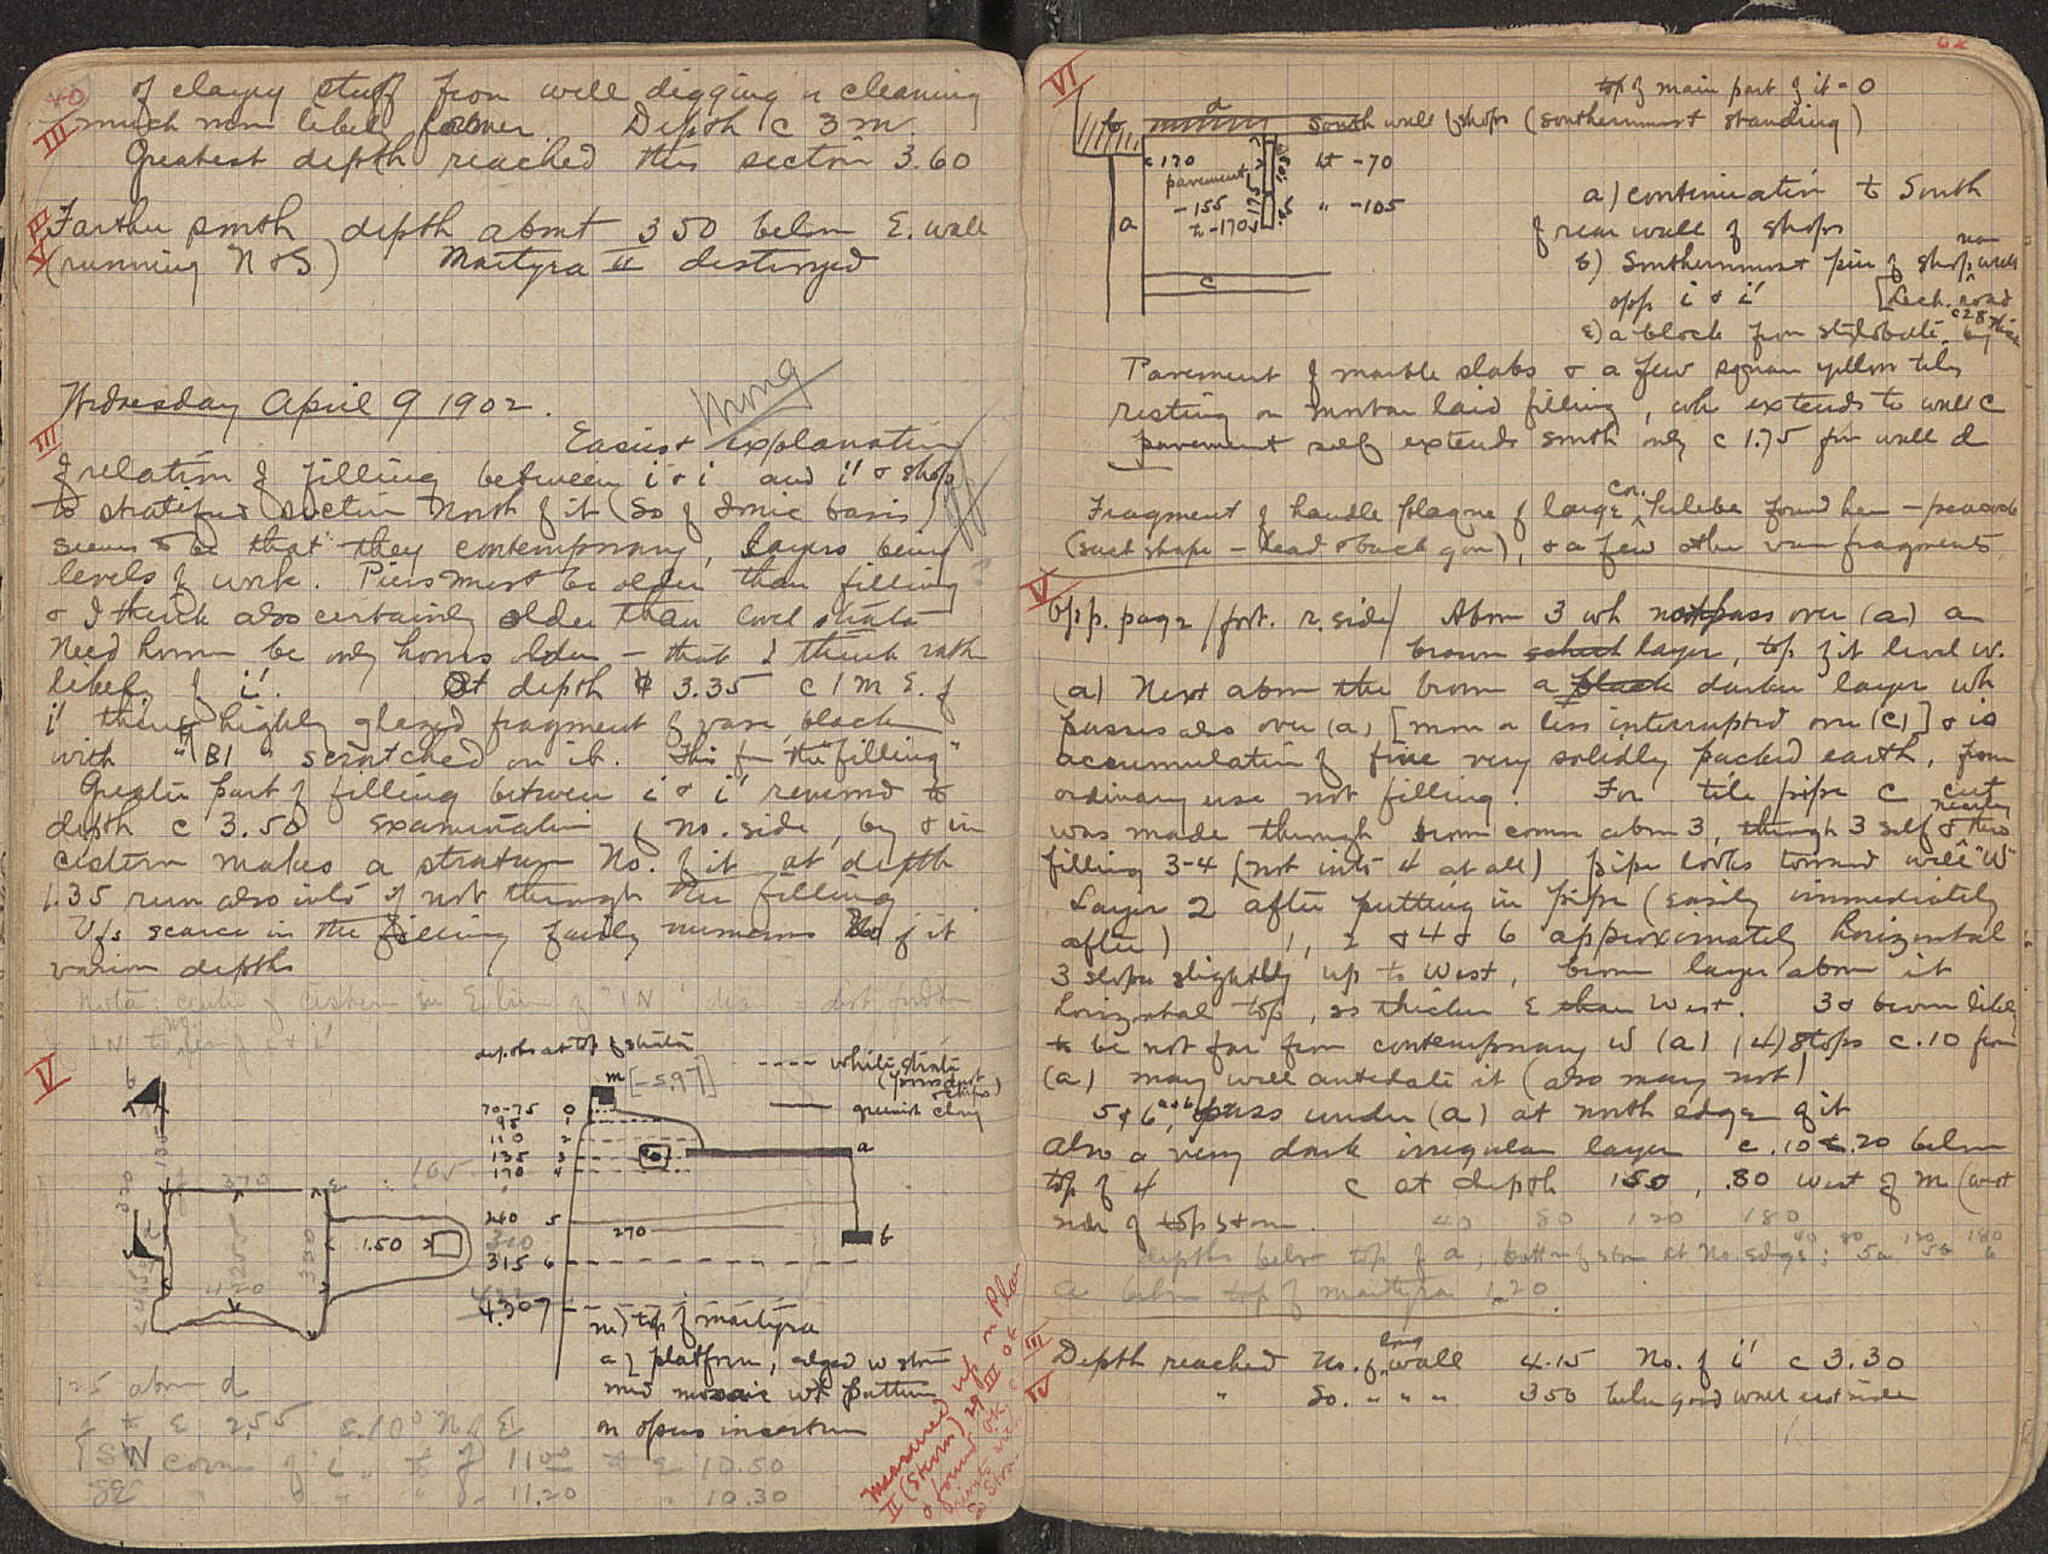 40
of clayey stuff from well digging or cleaning
III much more likely former. Depth c 3 m.
Greatest depth reached this section 3.60
IV Farther south depth about 350 below E. wall
V (running N & S) Martyra II destroyed
Wednesday April 9 1902.
Wrong
III Easiest explanation
of relation of filling between i & i' and i'' & shop
to stratified section North of it (So of Ionic basis)
seems to be that they contemporary, layers being
levels of work. Piers must be older than filling
& I think also certainly older than level strata
Need however be only hours older - that I think rather
likely of i'. At depth 3.35 c 1 m E. of
i' highly glazed fragment of vase, black
with "BI" scratched on it. This from the "filling"
Greater part of filling between i & i' removed to
depth c 3.50 Examination of no. side, by & in
cistern makes a stratum No. of it at depth
1.35 run also into if not through the filling
Vfs scarce in the filling fairly numerous No of it
various depths
Nota: center of cistern in E line of "IN"
V
depths at top of strata
m [-5.97]
---- white strata
(poros dust & chips)
—— greenish clay
70-75 0
95 1
110 2
135 3
170 4
a
165
240 5
300
270
b
315 6
4.307
b
370
E
1.50
1120
350
m) top of martyra
a) platform, edged w stone
and mosaic wk pattern
on opus incertum
125 above d
to E 2.55 E.10° N of E
SW corner of i " to f 11.00 to E 10.50
SE " " " " 11.20 " 10.30
Measured up on Plan
II (Stevens) 29 III 06
& found OK
62
VI top of main part of it = 0
d
b South wall of shops (southernmost standing)
c 170 ht -70
pavement
-155 " -105
to -170
175
a
c
a) continuation to South
of rear wall of shops
b) Southernmost pier of shops rear wall
opp i & i' [Lech. road
c) a block from stylobate c 28 thick
Pavement of marble slabs & a few square yellow tiles
resting on mortar laid filling, wh extends to wall c
pavement self extends south only c 1.75 from wall d
Fragment of handle plaque of large Cor. kelebe found here - peacock
(such shape - head & back gone), & a few other vase fragments
V Opp. page / fort. r. side / Above 3 wh not pass over (a) a
brown layer, top of it level w.
(a) Next above the brown a black darker layer wh
passes also over (a) [more or less interrupted over (c)] & is
accumulation of fine very solidly packed earth, from
ordinary use not filling. For tile pipe c cut
was made through brown comn above 3, through 3 self & nearly thro
filling 3-4 (not into 4 at all) pipe looks toward well "W"
Layer 2 after putting in pipe (easily immediately
after) 1, 2 & 4 & 6 approximately horizontal
3 slopes slightly up to West, brown layer above it
horizontal top, so thicker E than West. 3 & brown likely
to be not far from contemporary w (a) (4) stops c .10 from
(a) may well antedate it (also may not)
5 & 6 a & b, pass under (a) at north edge of it
Also a very dark irregular layer c .10 & .20 below
top of 4 c at depth 150, .80 west of m (west
side of top stone. 40 80 120 180
depths below top of a; bottom of stone at No. edge: 40 80 5a 120 5b 180 6
a below top of martyra 1.20
III Depth reached No. of long wall 4.15 No. of i' c 3.30
IV " So. " " " 350 below good wall east side